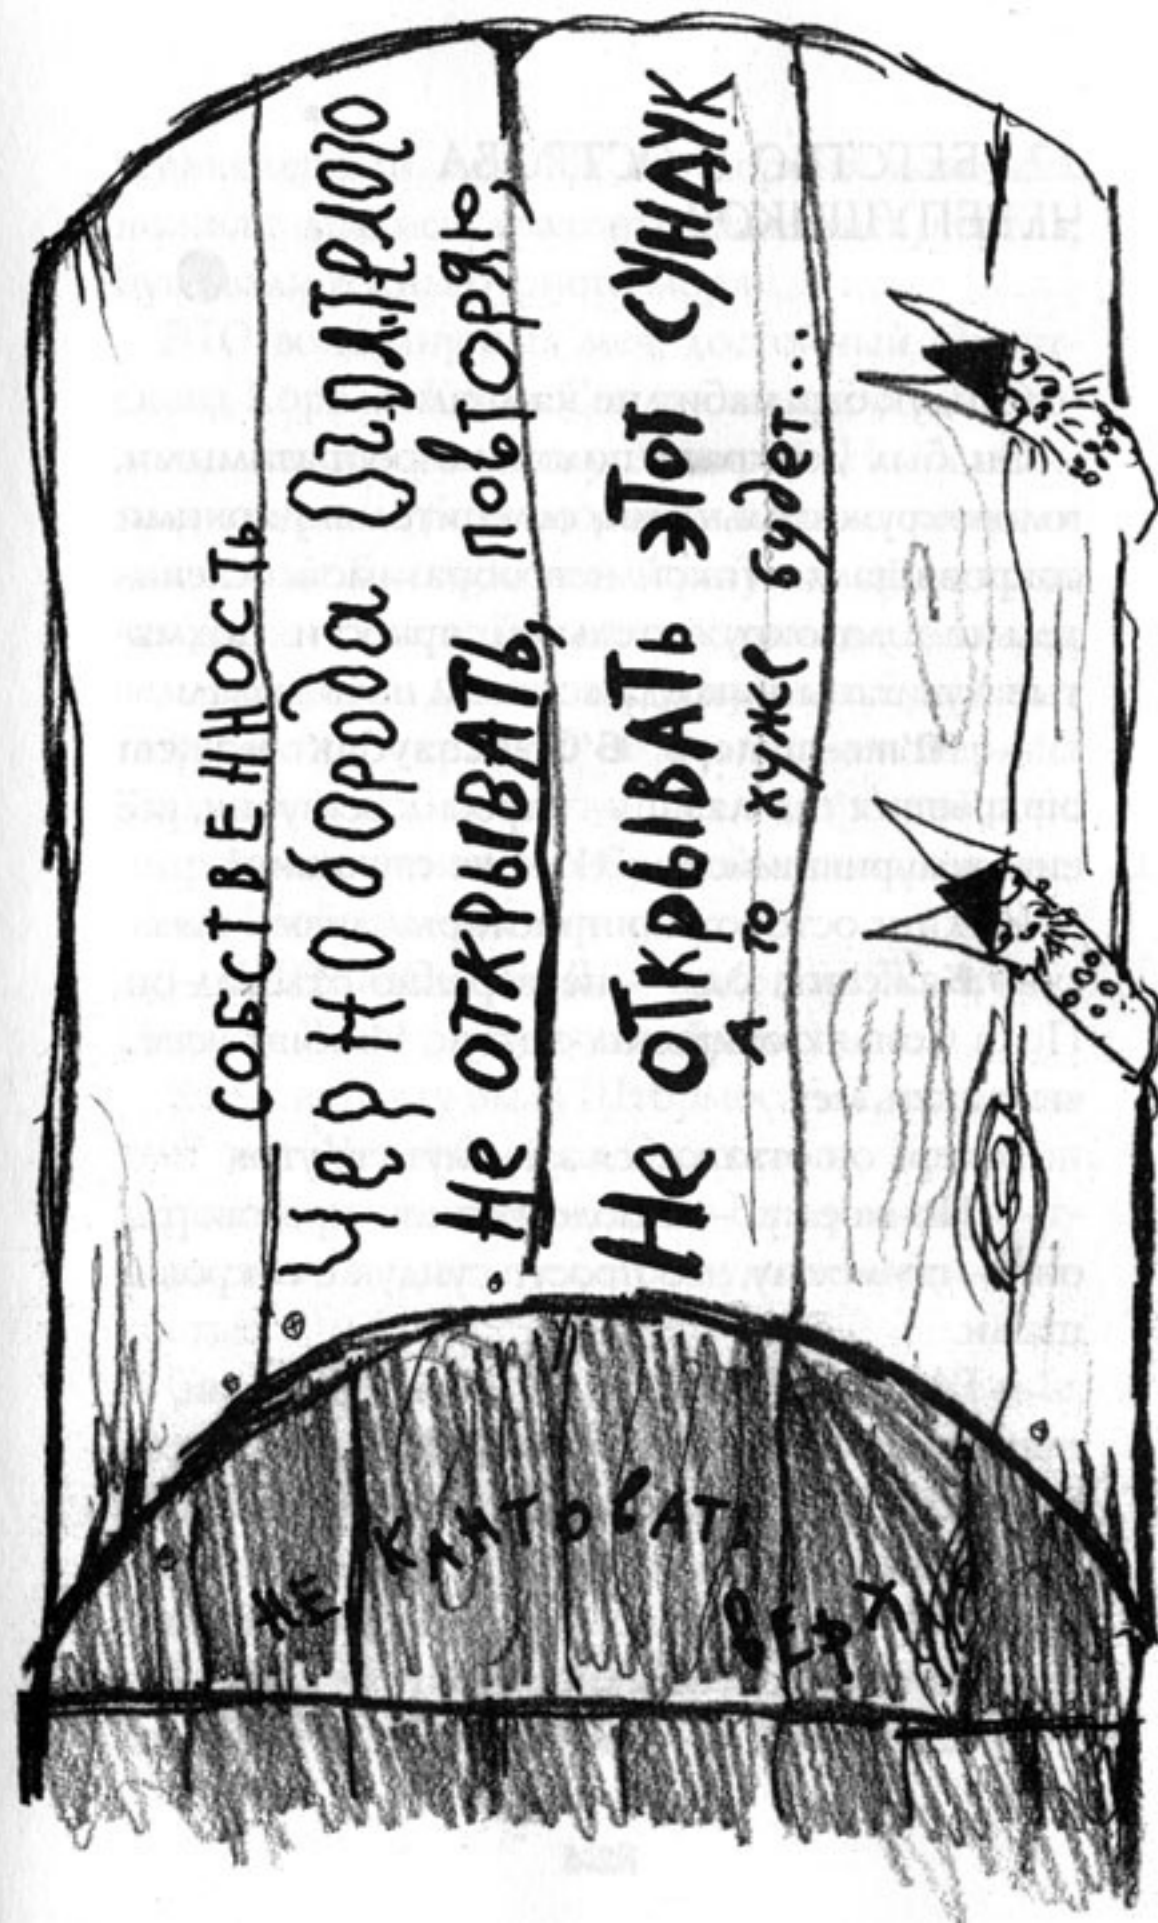 СОБСТВЕННОСТЬ
Черноборода Оголтелого
Не ОТКРЫВАТЬ, повторяю,
Не ОТКРЫВАТЬ ЭТОТ СУНДУК
А то хуже будет...
НЕ КАНТОВАТЬ
ВЕРХ